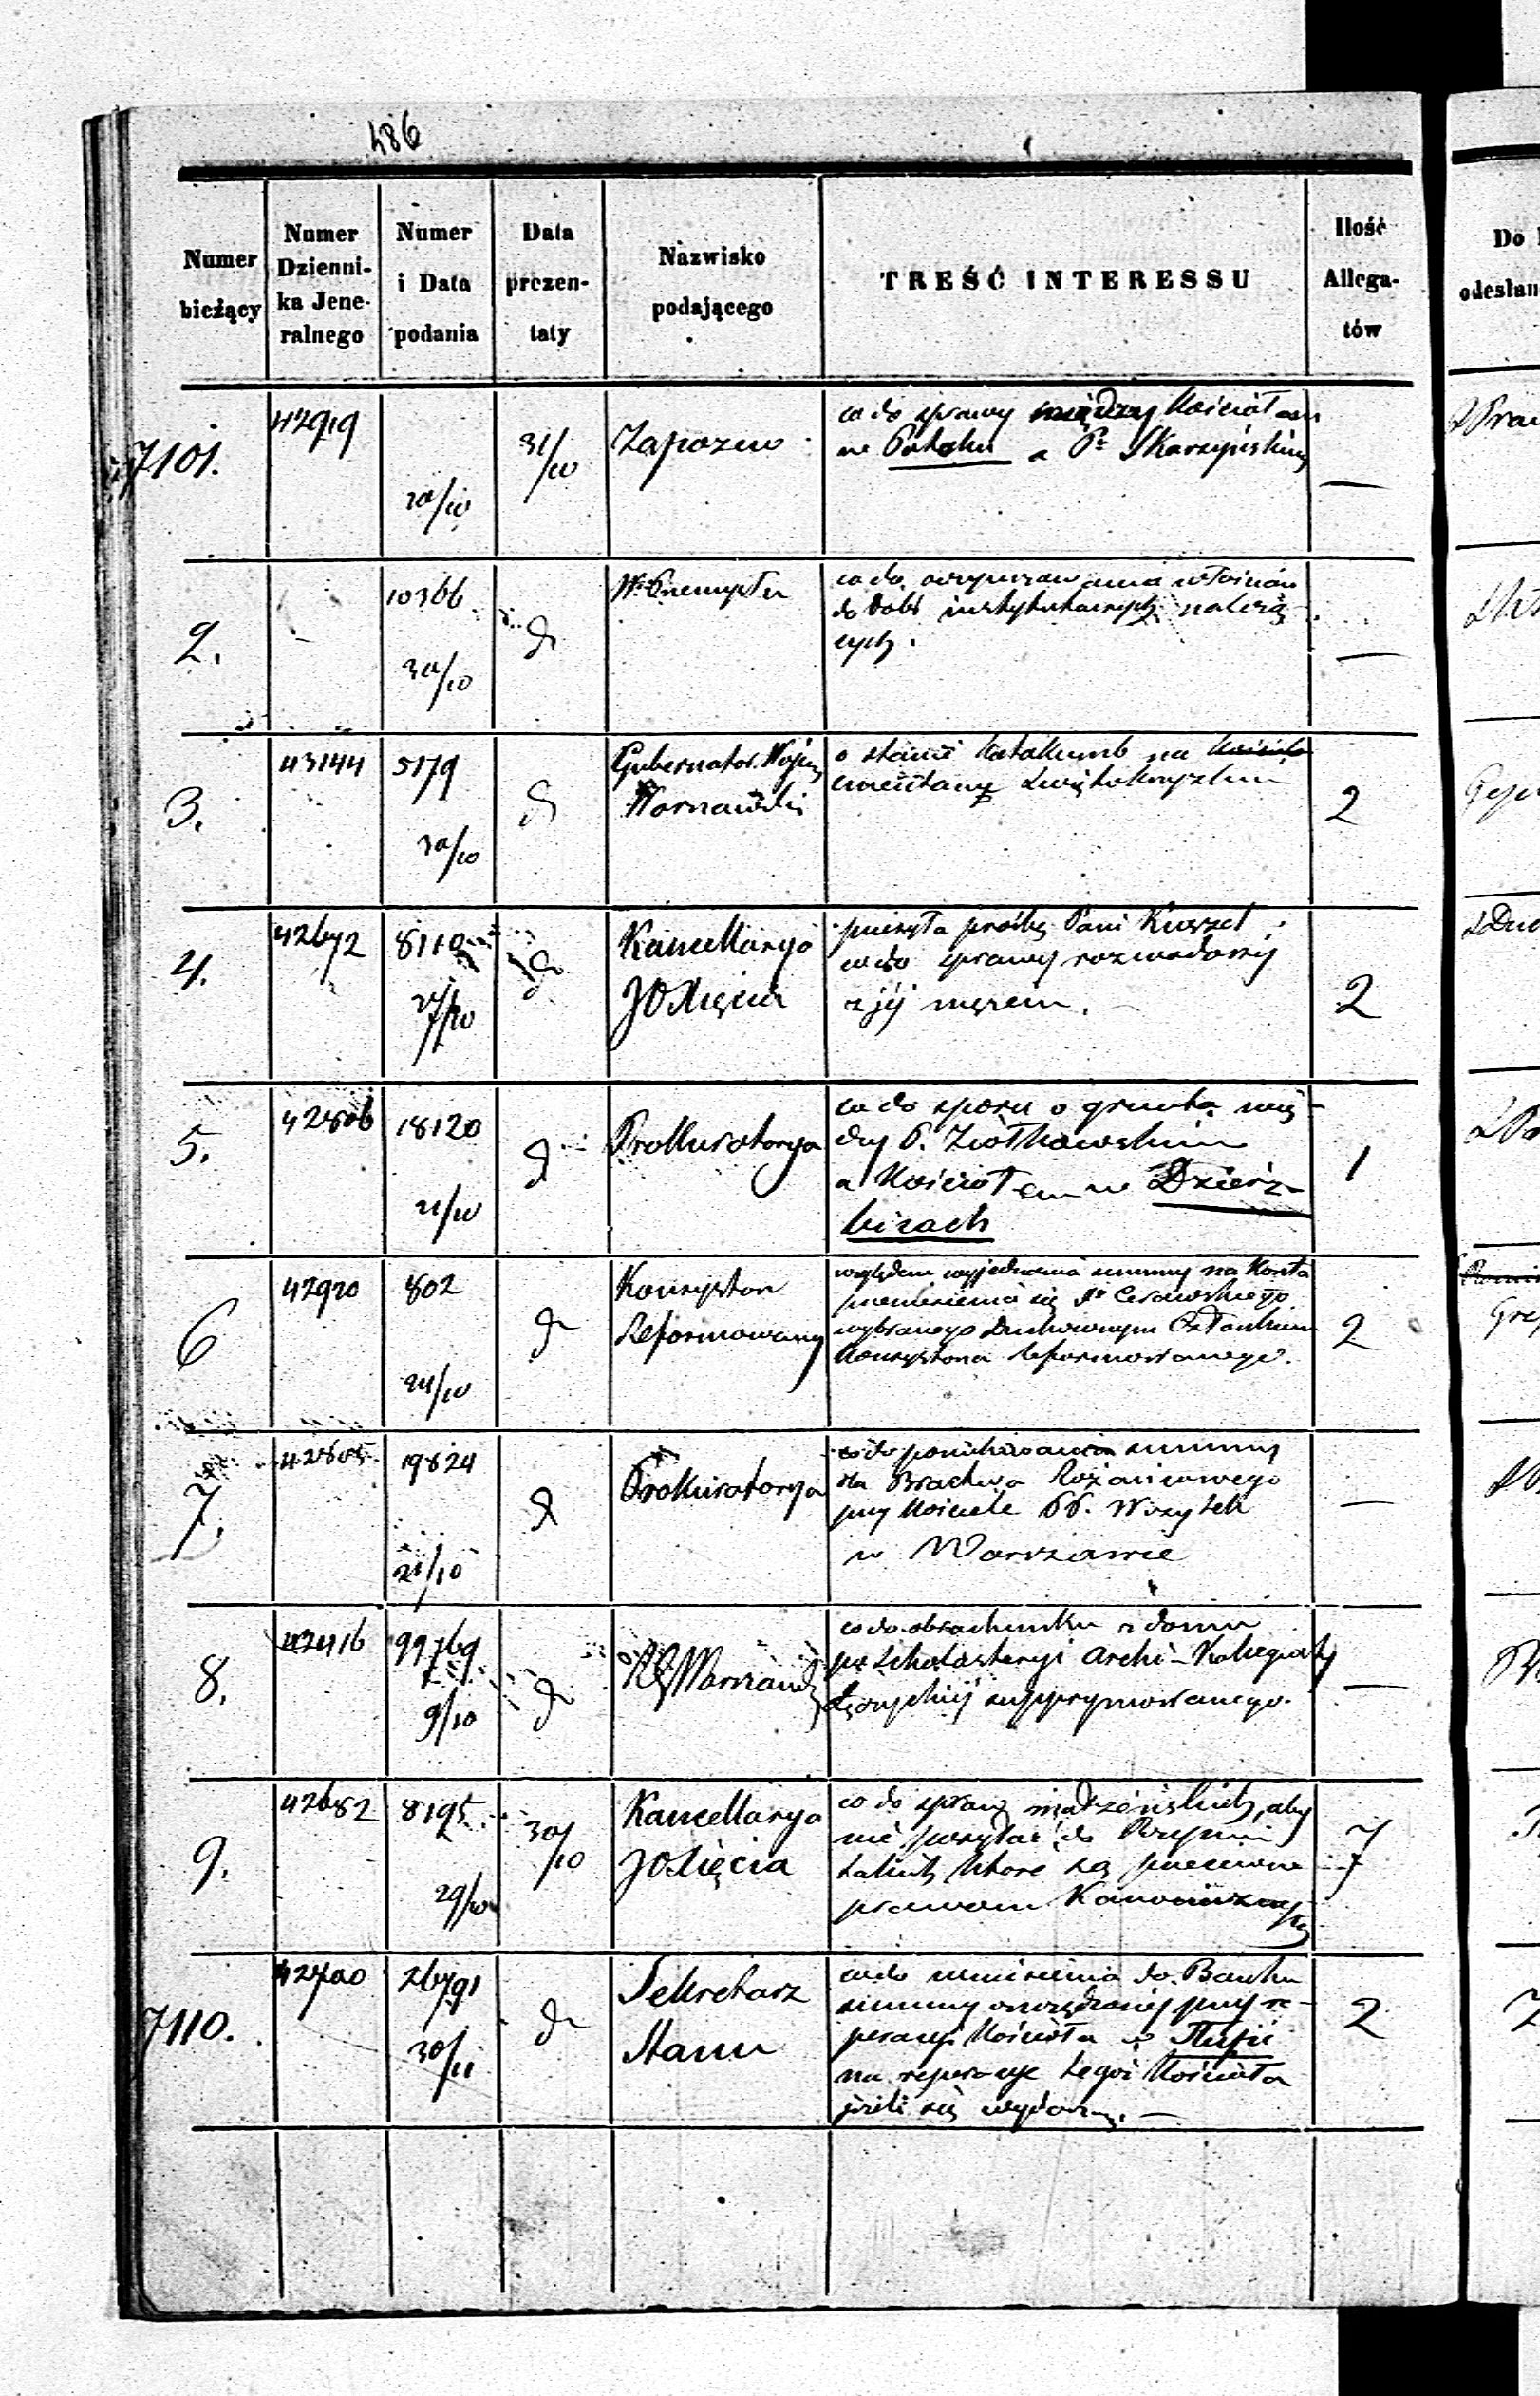 486
Numer bieżący
Numer Dzienni- ka Jene- ralnego
Numer i Data podania
Data prezen- taty
Nazwisko podającego
TREŚĆ INTERESSU
Ilość Allega- tów
Do
odesłan
7101.
42919
20/10
31/10
Zapozew
co do sprawy między Kościołem
w Potoku a Pe Skarzyńskim
—
2.
10366
30/10
do dobr instytutowych należą-
cych.
—
3.
43144
5179
30/10
Gubernator Wojen
Warszawski
o stanie Katakumb na
cmentarzu Świętokrzyzkim
2
4.
42672
8110
27/10
Kancellarya
JOXięcia
przesyła prośbę Pani Kurzel
co do sprawy rozwodowej
z jej mężem.
2
5.
42806
18120
21/10
Prokuratorya
co do sporu o grunta mię-
dzy P. Ziółkowskim
a Kościołem w Dzierz-
bicach
1
6
42920
802
24/10
Konsystorz
Reformowany
względem wyjednania summy na koszta
przeniesienia się
wybranego Duchownym Członkiem
Konsystorza Reformowanego.
2
7.
42805
19824
21/10
Prokuratorya
co do poszukiwania summy
dla Bractwa Rożańcowego
przy Kościele PP. Wizytek
w Warszawie
—
8.
42416
99769
9/10
RG Warszawski
co do obrachunku z domu
po Scholasteryi Archi-Kollegiaty
Łęczyckiej supprymowanego.
—
9.
42682
8195
29/10
30/10
Kancellarya
JOXięcia
co do spraw małżeńskich, aby
nie posyłać do Rzymu
takich które są przeciwne
prawom Kanonicznym
7
7110.
42700
26791
30/11
Sekretarz
Stanu
co do wniesienia do Banku
summy oszczędzonej przy re-
peracyi Kościoła w Słupi
na reperacye tegoż Kościoła
jeżeli się wydarzą. —
2